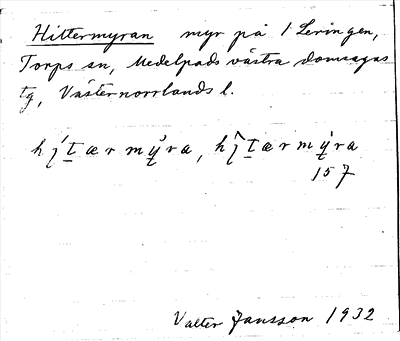 Hittermyran myr på 1 Leringen,
Torps sn, Medelpads västra domsagas
tg, Västernorrlands l.
157
Valter Jansson 1932